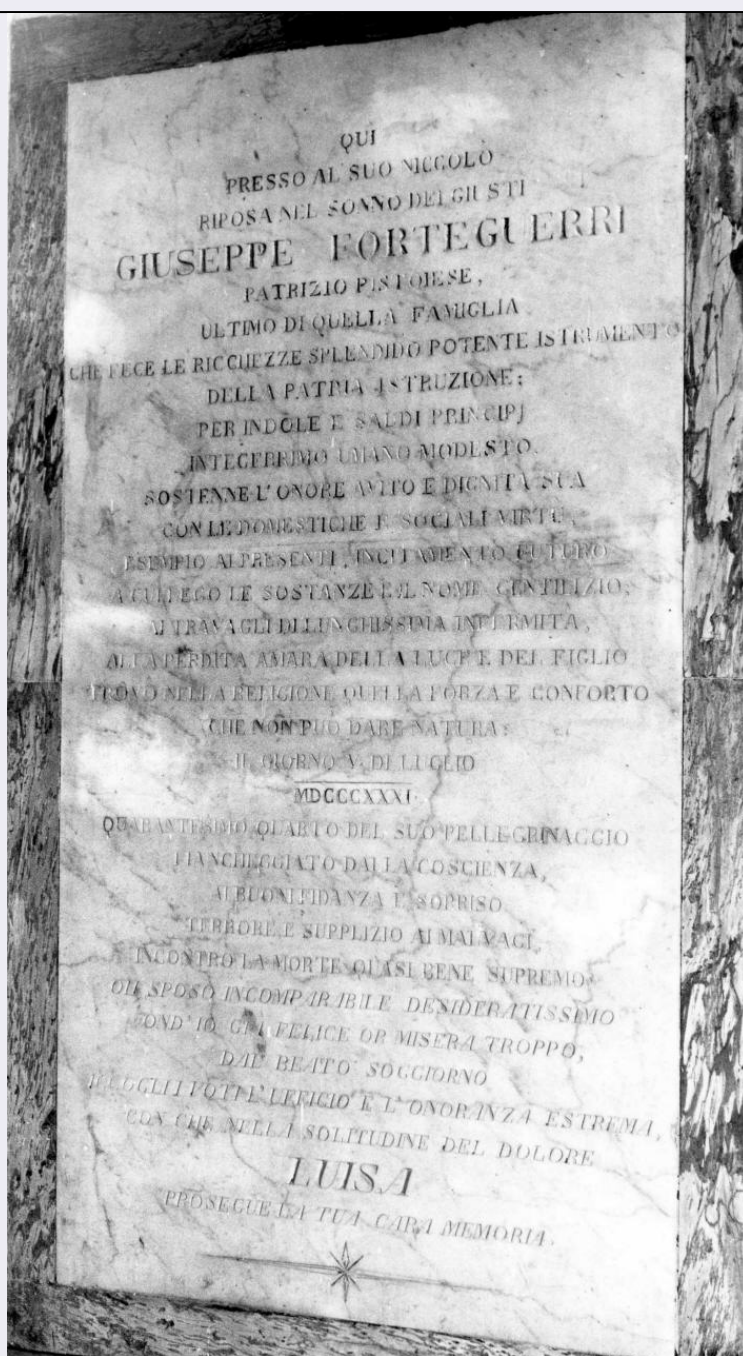 QUI
PRESSO AL SUO NICCOLÒ
RIPOSA NEL SONNO DEI GIUSTI
GIUSEPPE FORTEGUERRI
PATRIZIO PISTOIESE,
ULTIMO DI QUELLA FAMIGLIA
CHE FECE LE RICCHEZZE SPLENDIDO POTENTE ISTRUMENTO
DELLA PATRIA ISTRUZIONE;
PER INDOLE E SALDI PRINCIPJ
INTEGERRIMO UMANO MODESTO.
SOSTENNE L'ONORE AVITO E DIGNITÀ SUA
CON LE DOMESTICHE E SOCIALI VIRTÙ,
ESEMPIO AI PRESENTI, INCITAMENTO FUTURO
A CUI LEGÒ LE SOSTANZE E IL NOME GENTILIZIO;
AI TRAVAGLI DI LUNGHISSIMA INFERMITÀ,
ALLA PERDITA AMARA DELLA LUCE E DEL FIGLIO
TROVÒ NELLA RELIGIONE QUELLA FORZA E CONFORTO
CHE NON PUÒ DARE NATURA:
IL GIORNO V. DI LUGLIO
MDCCCXXXI.
QUARANTESIMO QUARTO DEL SUO PELLEGRINAGGIO
FIANCHEGGIATO DALLA COSCIENZA,
AI BUONI FIDANZA E SORRISO
TERRORE E SUPPLIZIO AI MALVAGI,
INCONTRÒ LA MORTE QUASI BENE SUPREMO.
OH SPOSO INCOMPARABILE DESIDERATISSIMO
OND' IO GIÀ FELICE OR MISERA TROPPO,
DAL BEATO SOGGIORNO
ACCOGLI I VOTI L'UFICIO E L'ONORANZA ESTREMA,
CON CHE NELLA SOLITUDINE DEL DOLORE
LUISA
PROSEGUE LA TUA CARA MEMORIA.